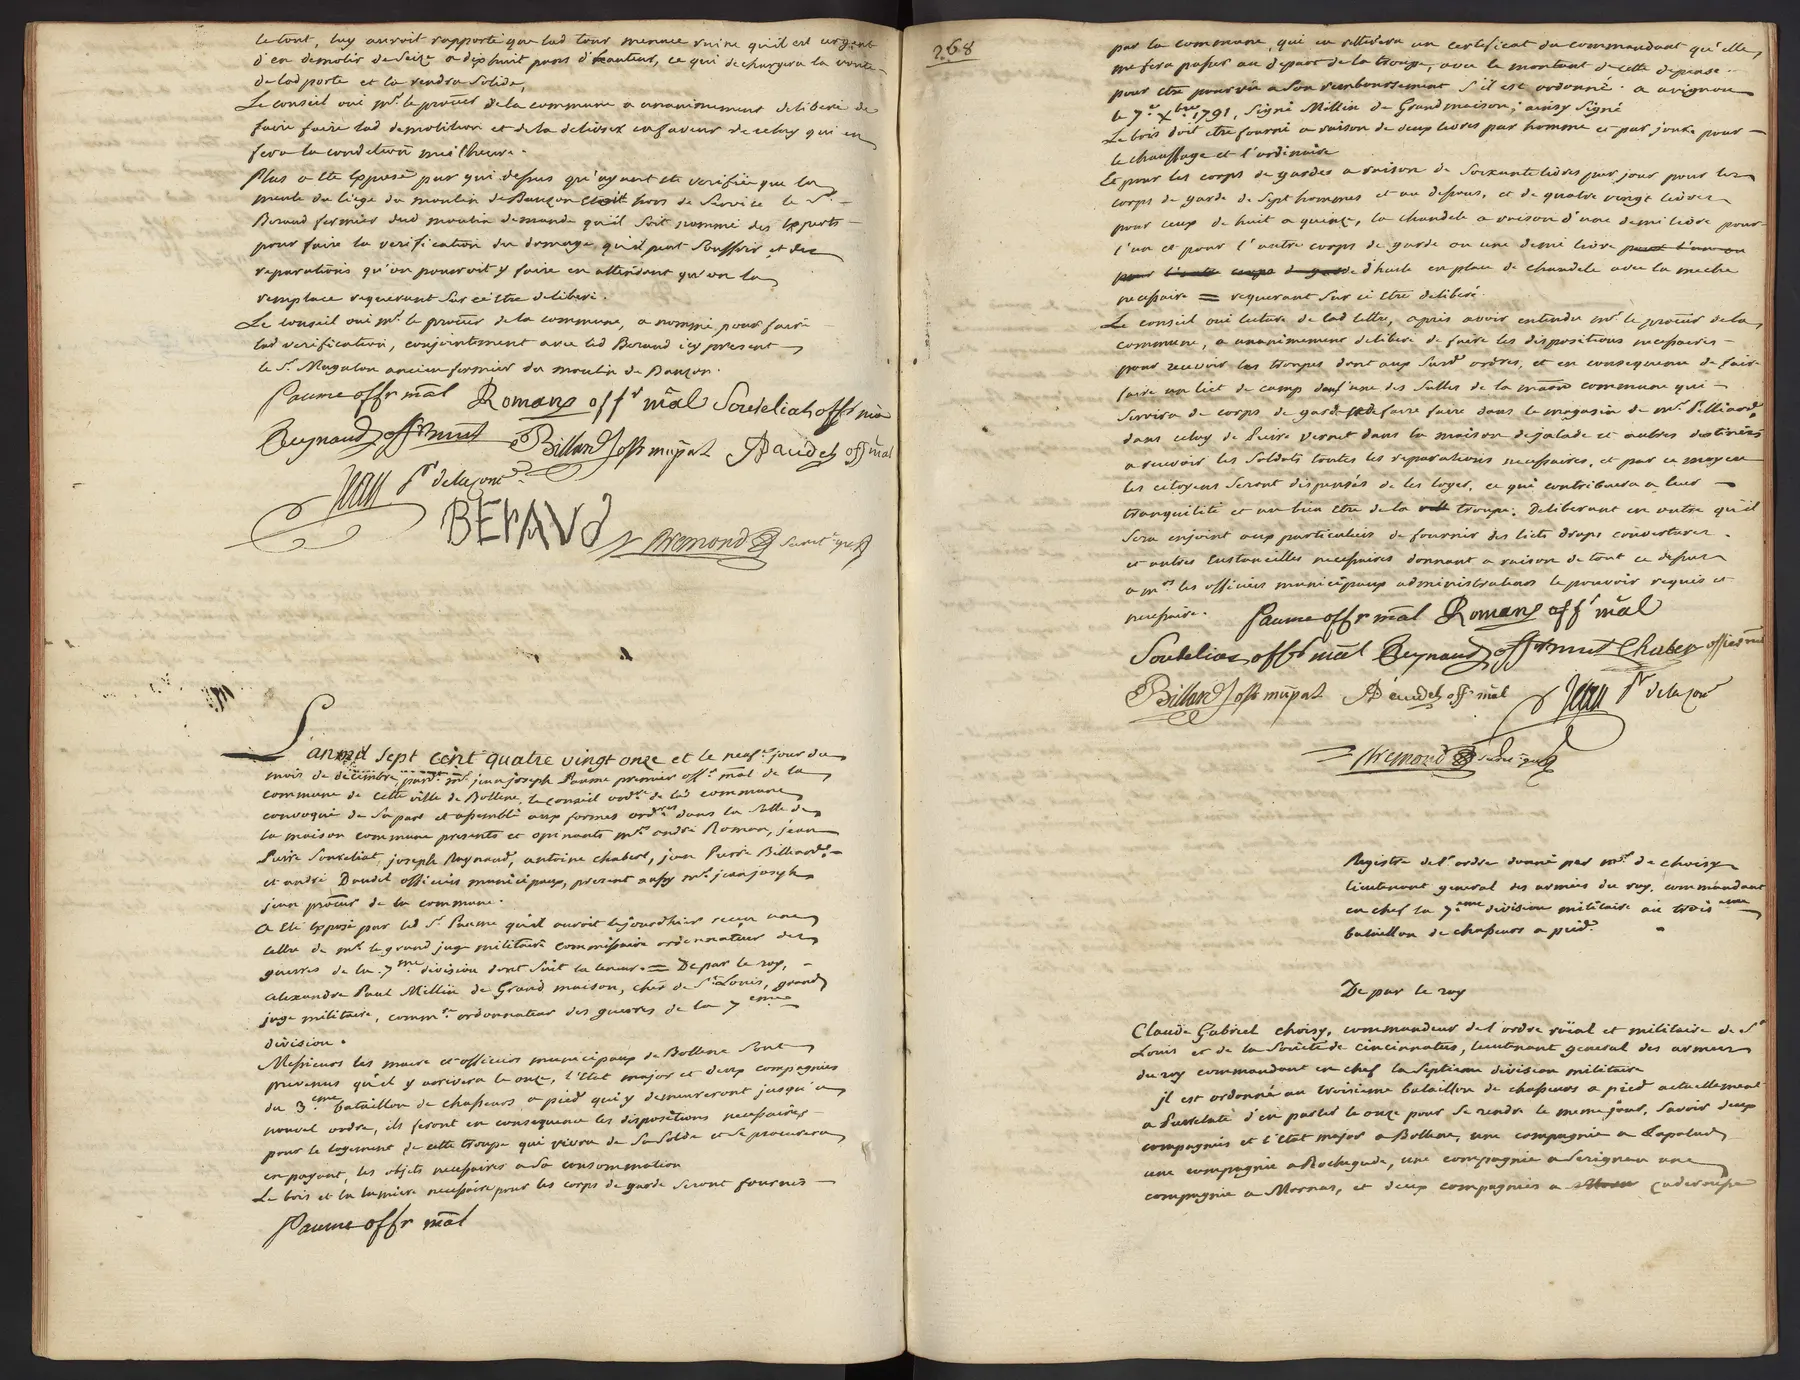 le tout, luy auroit rapporté que lad tour menace ruine qu'il est urgent
d'en demolir de seize a dix huit pans d'hauteur, ce qui dechargera la voute
de lad porte et la rendra solide,
Le conseil oui mr. le procur de la commune a unanimement deliberé de
faire faire lad demolition et de la delivrer en faveur de celuy qui en
fera la condition meilheure.
Plus a été exposé par qui dessus qu'ayant été verifié que la
meule du liege du moulin de Bauzon etoit hors de service le Sr.
Beraud fermier dud moulin demande qu'il soit nommé des experts
pour faire la verification du domage qu'il peut souffrir et des
reparations qu'on pourroit y faire en attendant qu'on la
remplace requerant sur ce être deliberé.
Le conseil oui mr. le procur de la commune, a nommé pour faire
lad verification, conjointement avec led Beraud icy present
le Sr. Magalon ancien fermier du moulin de Bauzon.
Paume offr mal Romans offr mal Souteliat offr mal
Reynaud offr mut Billard offr mupal A Daudel off mal
Jean pr de la come
BERAUD
Bremond secret. greff
L'an mil sept cent quatre vingt onze et le neufe. jour du
mois de decembre pardt. mr. jean joseph Paume premier offr. mal de la
commune de cette ville de Bollene, le conseil ordre de lad commune
convoqué de sa part et assemblé aux formes ordres dans la salle de
la maison commune presents et opinants mrs andré Roman, jean
Pierre Souteliat, joseph Raynaud, antoine chabert, jean Pierre Billiard,
et andré Daudel officiers municipaux, present aussy mr. jean joseph
jean procur de la commune.
A été exposé par led Sr. Paume qu'il auroit lejourdhier reçu une
lettre de mr. le grand juge militaire commissaire ordonnateur des
guerres de la 7me division dont suit la teneur = De par le roy,
alexandre Paul Millin de Grand maison, cher de St. Louis, grand
juge militaire, commre ordonnateur des guerres de la 7eme
division.
Messieurs les maire et officiers municipaux de Bollene sont
prevenus qu'il y arrivera le onze, l'Etat major et deux compagnies
du 3eme bataillon de chasseurs a pied qui y demeureront jusqu'a
nouvel ordre, ils feront en consequence les dispositions necessaires
pour le logement de cette troupe qui vivra de sa solde et se procurera
en payant, les objets necessaires a sa consommation
Le bois et la lumiere necessaire pour les corps de garde seront fournis
Paume offr mal
268
par la commune, qui en retirera un certificat du commandant qu'elle
me fera passer au depart de la troupe, avec le montant de cette depense
pour être pourvu a son remboursement s'il est ordonné. a avignon
le 7e. xbre. 1791, Signé Millin de Grandmaison; ainsy signé
Le bois doit etre fourni a raison de deux livres par homme et par jour pour
le chauffage et l'ordinaire
Et pour les corps de gardes a raison de soixante livres par jour pour les
corps de garde de sept hommes et au dessous, et de quatre vingt livres
pour ceux de huit a quinze, la chandele a raison d'une demi livre pour
l'un et pour l'autre corps de garde ou une demi livre pour l'un ou
pour l'autre corps de garde d'huile en place de chandele avec la meche
necessaire = requerant sur ci être deliberé.
Le conseil oui lecture de lad lettre, apres avoir entendu mr. le procur de la
commune, a unanimement deliberé de faire les dispositions necessaires
pour recevoir les troupes dont aux susd ordres, et en consequence de faire
faire un lict de camp dans l'une des salles de la maison commune qui
servira de corps de garde, de faire faire dans le magasin de mr. Billiard,
dans celuy de Pierre Vernet dans la maison dejalade et autres destinés
a recevoir les soldats toutes les reparations necessaires, et par ce moyen
les citoyens seront dispensés de les loger, ce qui contribuera a leur
tranquilité et au bien etre de la troupe. Deliberant en outre qu'il
sera enjoint aux particuliers de fournir des licts draps couvertures
et autres ustancilles necessaires donnant a raison de tout ce dessus
a mrs les officiers municipaux administrateurs le pouvoir requis et
necessaire. Paume offr mal Romans offr mal
Souteliat offr mal Reynaud offr mut Chabert officier mal
Billard offr mupal A Daudel offr mal Jean pr de la come
Bremond secret. greff
Registre de l'ordre donné par mr. de choisy
lieutenant general des armées du roy, commandant
en chef la 7eme division militaire au troisieme
bataillon de chasseurs a pied.
De par le roy
Claude Gabriel choisy, commandeur de l'ordre roïal et militaire de St
Louis et de la societé de cincinnatus, lieutenant general des armées
du roy commandant en chef la septieme division militaire
jl est ordonné au troisieme bataillon de chasseurs a pied actuellement
a Pierrelate d'en partir le onze pour se rendre le meme jour, savoir deux
compagnies et l'etat major a Bollene, une compagnie a Lapalud
une compagnie a Rochegude, une compagnie a Serignan une
compagnie a Mornas, et deux compagnies a Caderousse